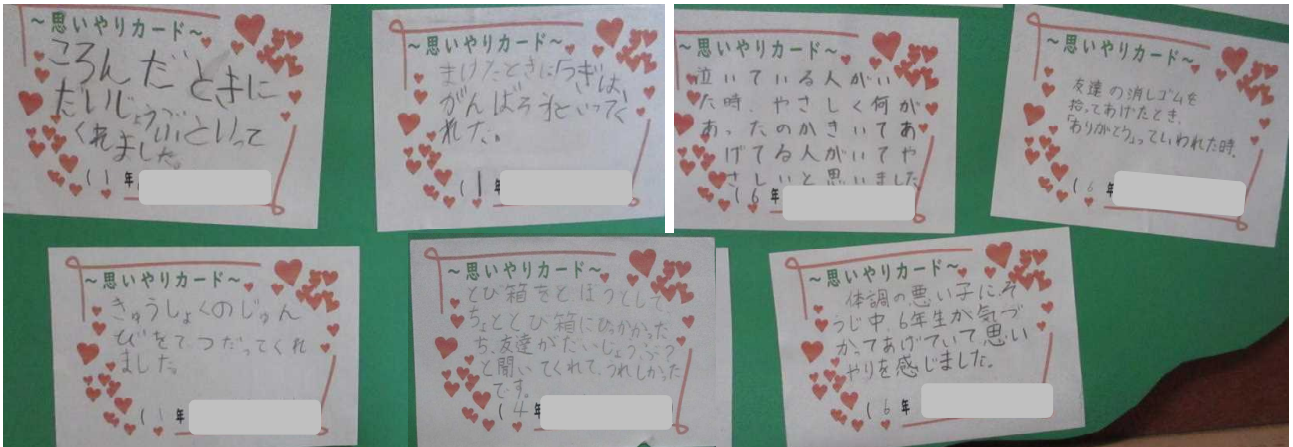 ～思いやりカード～
ころんだときに
だいじょうぶといって
くれました。
(1年
～思いやりカード～
まけたときに「つぎは、
がんばろう」といってく
れた。
(1年
～思いやりカード～
泣いている人がい
た時、やさしく何が
あったのかきいてあ
げてる人がいてや
さしいと思いました
(6年
～思いやりカード～
友達の消しゴムを
拾ってあげたとき、
「ありがとう」っていわれた時。
(6年
～思いやりカード～
きゅうしょくのじゅん
びをてつだってくれ
ました。
(1年
～思いやりカード～
とび箱をとぼうとして
ちょっととび箱にひっかかった
ら、友達がだいじょうぶ?
と聞いてくれて、うれしかった
です。
(4年
～思いやりカード～
体調の悪い子に、そ
うじ中、6年生が気づ
かってあげていて思い
やりを感じました。
(6年